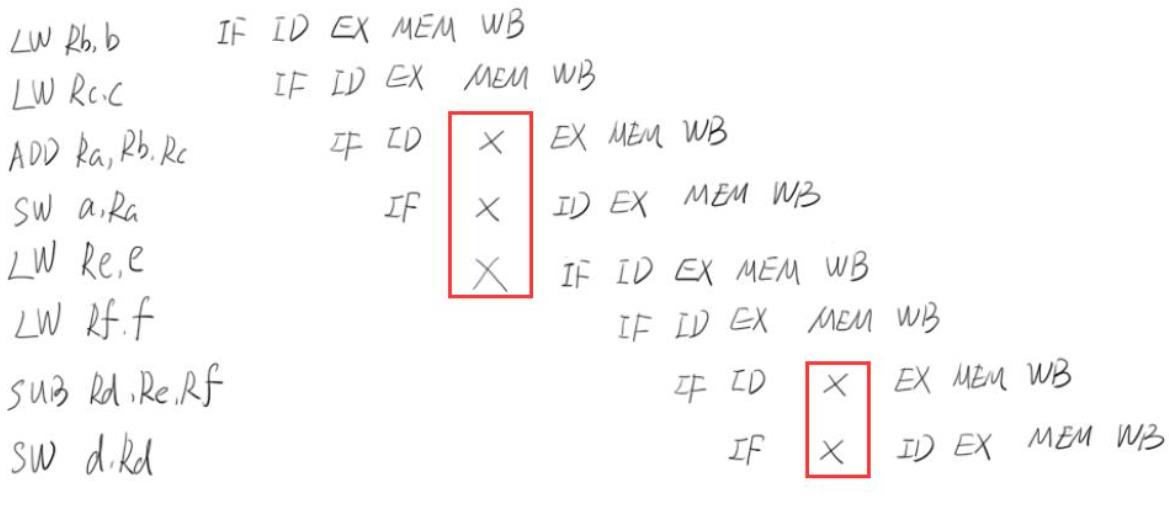 LW Rb,b IF ID EX MEM WB
LW Rc.c IF ID EX MEM WB
ADD Ra,Rb.Rc IF ID X EX MEM WB
SW a,Ra IF X ID EX MEM WB
LW Re,e X IF ID EX MEM WB
LW Rf.f IF ID EX MEM WB
SUB Rd,Re,Rf IF ID X EX MEM WB
SW d.Rd IF X ID EX MEM WB